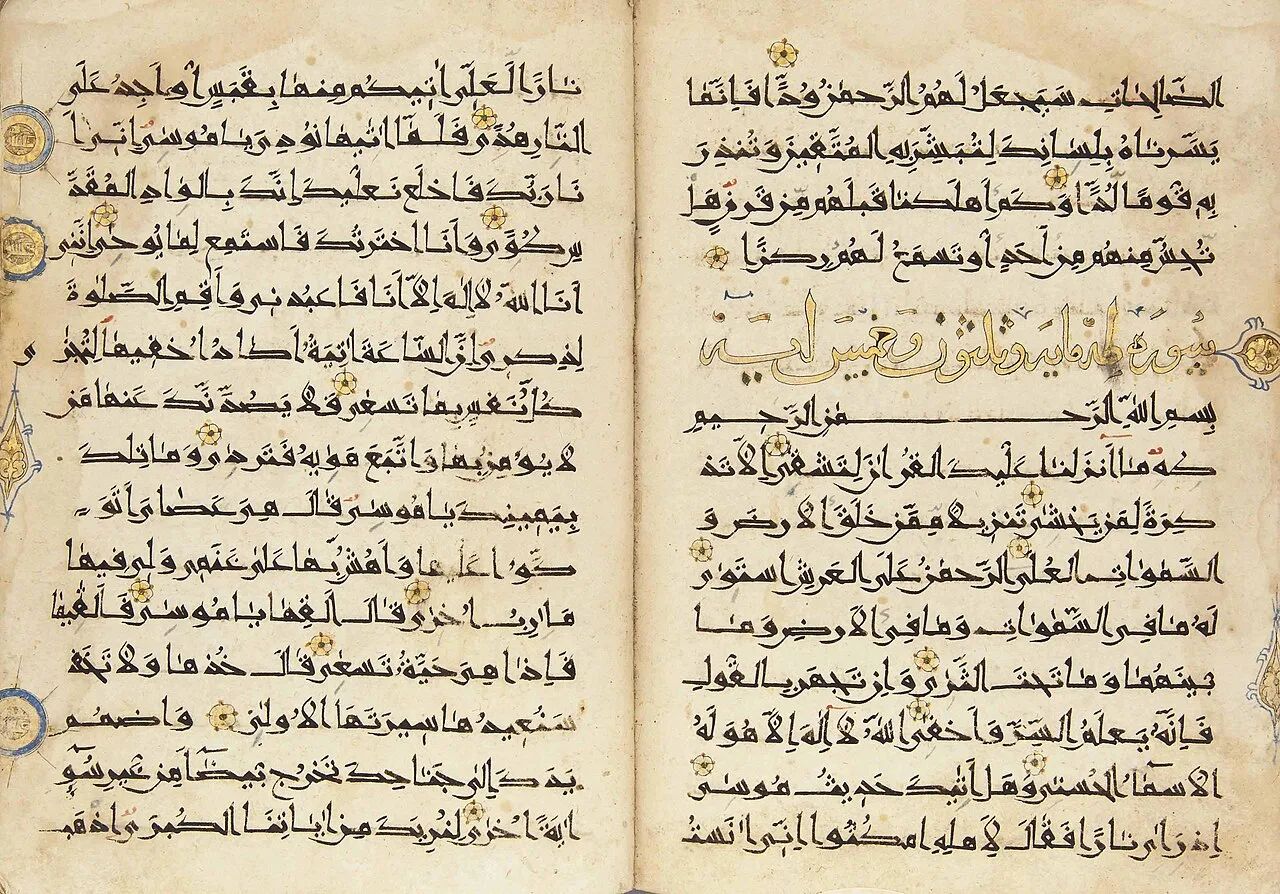 الصَّالِحَاتِ سَيَجْعَلُ لَهُمُ الرَّحْمٰنُ وُدًّا فَاِنَّمَا
يَسَّرْنَاهُ بِلِسَانِكَ لِتُبَشِّرَ بِهِ الْمُتَّقِينَ وَتُنْذِرَ
بِهِ قَوْمًا لُدًّا وَكَمْ أَهْلَكْنَا قَبْلَهُمْ مِنْ قَرْنٍ هَلْ
تُحِسُّ مِنْهُمْ مِنْ أَحَدٍ أَوْ تَسْمَعُ لَهُمْ رِكْزًا
سُورَة طه مايه وثلثون وخمس آية
بِسْمِ اللّٰهِ الرَّحْمٰنِ الرَّحِيمِ
طه مَا أَنْزَلْنَا عَلَيْكَ الْقُرْاٰنَ لِتَشْقٰى اِلَّا تَذْ
كِرَةً لِمَنْ يَخْشٰى تَنْزِيلًا مِمَّنْ خَلَقَ الْاَرْضَ وَ
السَّمٰوَاتِ الْعُلٰى الرَّحْمٰنُ عَلَى الْعَرْشِ اسْتَوٰى
لَهُ مَا فِي السَّمٰوَاتِ وَمَا فِي الْاَرْضِ وَمَا
بَيْنَهُمَا وَمَا تَحْتَ الثَّرٰى وَاِنْ تَجْهَرْ بِالْقَوْلِ
فَاِنَّهُ يَعْلَمُ السِّرَّ وَاَخْفٰى اللّٰهُ لَا اِلٰهَ اِلَّا هُوَ لَهُ
الْاَسْمَاءُ الْحُسْنٰى وَهَلْ اَتٰيكَ حَدِيثُ مُوسٰى
اِذْ رَاٰى نَارًا فَقَالَ لِاَهْلِهِ امْكُثُوا اِنِّي اٰنَسْتُ
نَارًا لَعَلِّي اٰتِيكُمْ مِنْهَا بِقَبَسٍ اَوْ اَجِدُ عَلَى
النَّارِ هُدًى فَلَمَّا اَتٰيهَا نُودِيَ يَا مُوسٰى اِنِّي اَ
نَا رَبُّكَ فَاخْلَعْ نَعْلَيْكَ اِنَّكَ بِالْوَادِ الْمُقَدَّ
سِ طُوًى وَاَنَا اخْتَرْتُكَ فَاسْتَمِعْ لِمَا يُوحٰى اِنَّنِي
اَنَا اللّٰهُ لَا اِلٰهَ اِلَّا اَنَا فَاعْبُدْنِي وَاَقِمِ الصَّلٰوةَ
لِذِكْرِي اِنَّ السَّاعَةَ اٰتِيَةٌ اَكَادُ اُخْفِيهَا لِتُجْزٰى
كُلُّ نَفْسٍ بِمَا تَسْعٰى فَلَا يَصُدَّنَّكَ عَنْهَا مَنْ
لَا يُؤْمِنُ بِهَا وَاتَّبَعَ هَوٰيهُ فَتَرْدٰى وَمَا تِلْكَ
بِيَمِينِكَ يَا مُوسٰى قَالَ هِيَ عَصَايَ اَتَوَ
كَّؤُا عَلَيْهَا وَاَهُشُّ بِهَا عَلٰى غَنَمِي وَلِيَ فِيهَا
مَاٰرِبُ اُخْرٰى قَالَ اَلْقِهَا يَا مُوسٰى فَاَلْقٰيهَا
فَاِذَا هِيَ حَيَّةٌ تَسْعٰى قَالَ خُذْهَا وَلَا تَخَفْ
سَنُعِيدُهَا سِيرَتَهَا الْاُولٰى وَاضْمُمْ
يَدَكَ اِلٰى جَنَاحِكَ تَخْرُجْ بَيْضَاءَ مِنْ غَيْرِ سُوءٍ
اٰيَةً اُخْرٰى لِنُرِيَكَ مِنْ اٰيَاتِنَا الْكُبْرَى اذْهَبْ